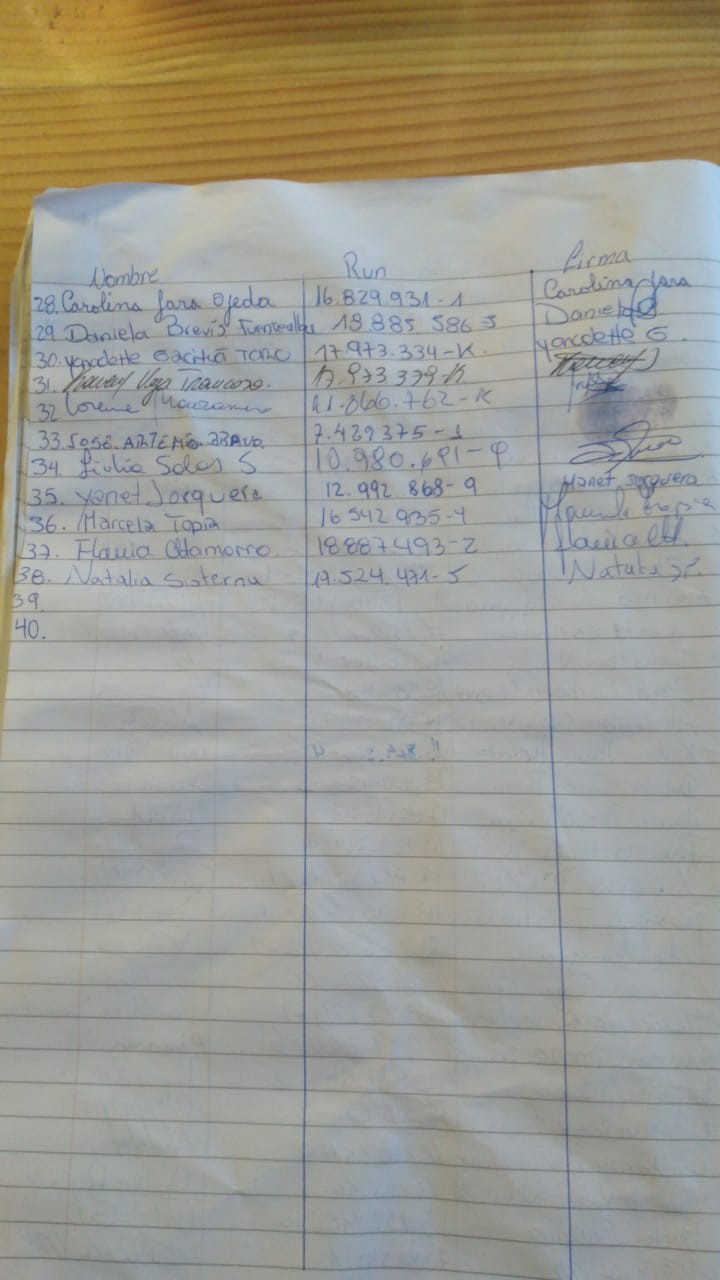 Nombre Run Firma
28. Carolina Jara Ojeda 16.829.931-1 Carolina Jara
29 Daniela Brevis Fuentealba 18.885 586-5 Daniela
30. yanodette Gacitúa Toro 17.973.334-K. yanodette G.
31. Vega Troncoso. 17.973.379-K
32 Lorena 11.866.762-K
33 JOSÉ. ARTEMIO. BRAVO. 7.429375-1
34. Salas S 10.980.691-φ
35. Yanet Jorquera 12.992 868-9 Yanet Jorquera
36. Marcela Tapia 16 542 935-4 Tapia
37. Flavia Altamorro 18887493-2
38. Natalia Sisterna 19.524.471-5 Natalia
39.
40.